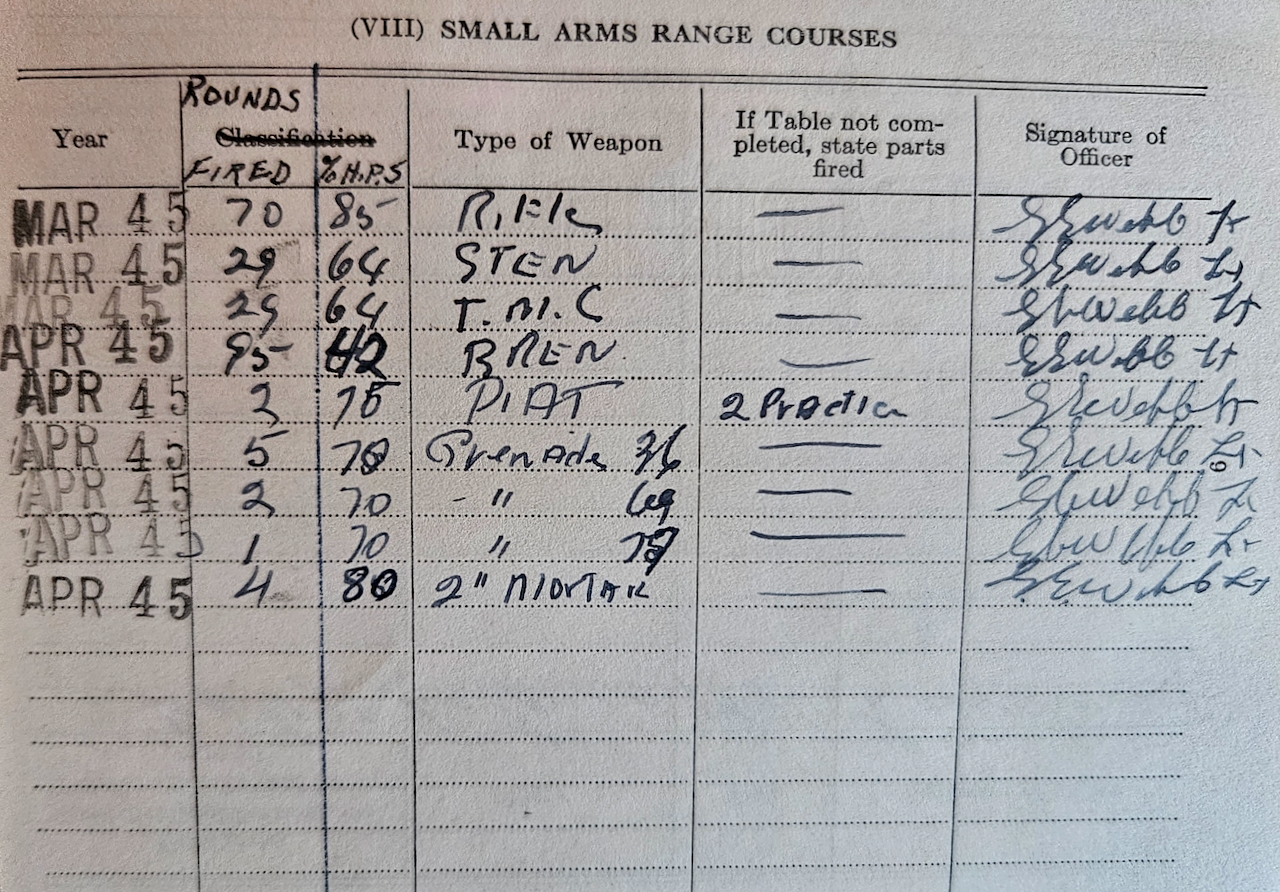 (VIII) SMALL ARMS RANGE COURSES
Year ROUNDS Classification FIRED % H.P.S Type of Weapon If Table not completed, state parts fired Signature of Officer
MAR 45 70 85 Rifle — GEWebb Lt
MAR 45 29 64 STEN — GEWebb Lt
MAR 45 29 64 T.M.C — GEWebb Lt
APR 45 95 42 BREN — GEWebb Lt
APR 45 2 75 PIAT 2 Practice GEWebb Lt
APR 45 5 70 Grenade 36 — GEWebb Lt
APR 45 2 70 - " 69 — GEWebb Lt
APR 45 1 70 " — GEWebb Lt
APR 45 4 80 2" MORTAR — GEWebb Lt